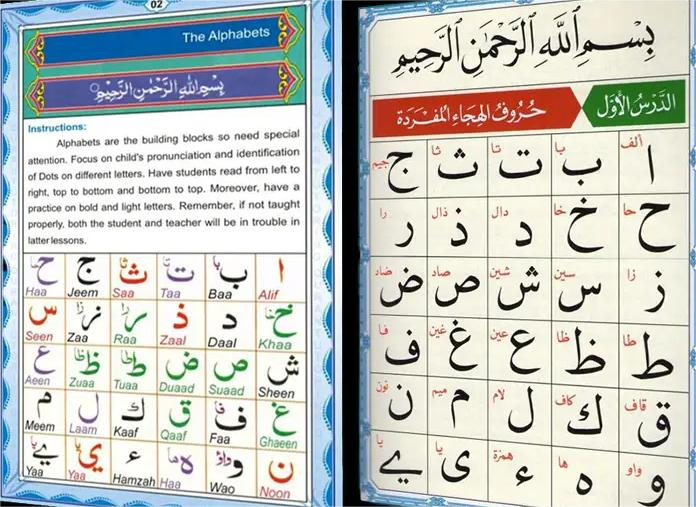 02
The Alphabets
بِسْمِ اللهِ الرَّحْمٰنِ الرَّحِيْمِ
Instructions:
Alphabets are the building blocks so need special
attention. Focus on child's pronunciation and identification
of Dots on different letters. Have students read from left to
right, top to bottom and bottom to top. Moreover, have a
practice on bold and light letters. Remember, if not taught
properly, both the student and teacher will be in trouble in
latter lessons.
ا ب با ت تا ث ثا ج ح حا
Haa Jeem Saa Taa Baa Alif
خ خا د ذ ر را ز زا س
Seen Zaa Raa Zaal Daal Khaa
ش ص ض ط طا ظ ظا ع
Aeen Zuaa Tuaa Duaad Suaad Sheen
غ ف فا ق ك ل م
Meem Laam Kaaf Qaaf Faa Ghaeen
ن و واؤ ه ها ء ي يا ے يا
Yaa Yaa Hamzah Haa Wao Noon
بِسْمِ اللهِ الرَّحْمٰنِ الرَّحِيْمِ
الدَّرْسُ الْأَوَّل حُرُوفُ الهِجَاءِ المُفْرَدَة
ألف با تا ثا جيم
ا ب ت ث ج
حا خا دال ذال را
ح خ د ذ ر
زا سين شين صاد ضاد
ز س ش ص ض
طا ظا عين غين فا
ط ظ ع غ ف
قاف كاف لام ميم نون
ق ك ل م ن
واو ها همزة يا يا
و ه ء ى ے